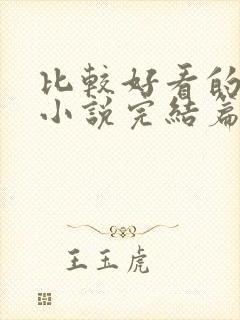 比較好看的
小說完結篇
王玉虎